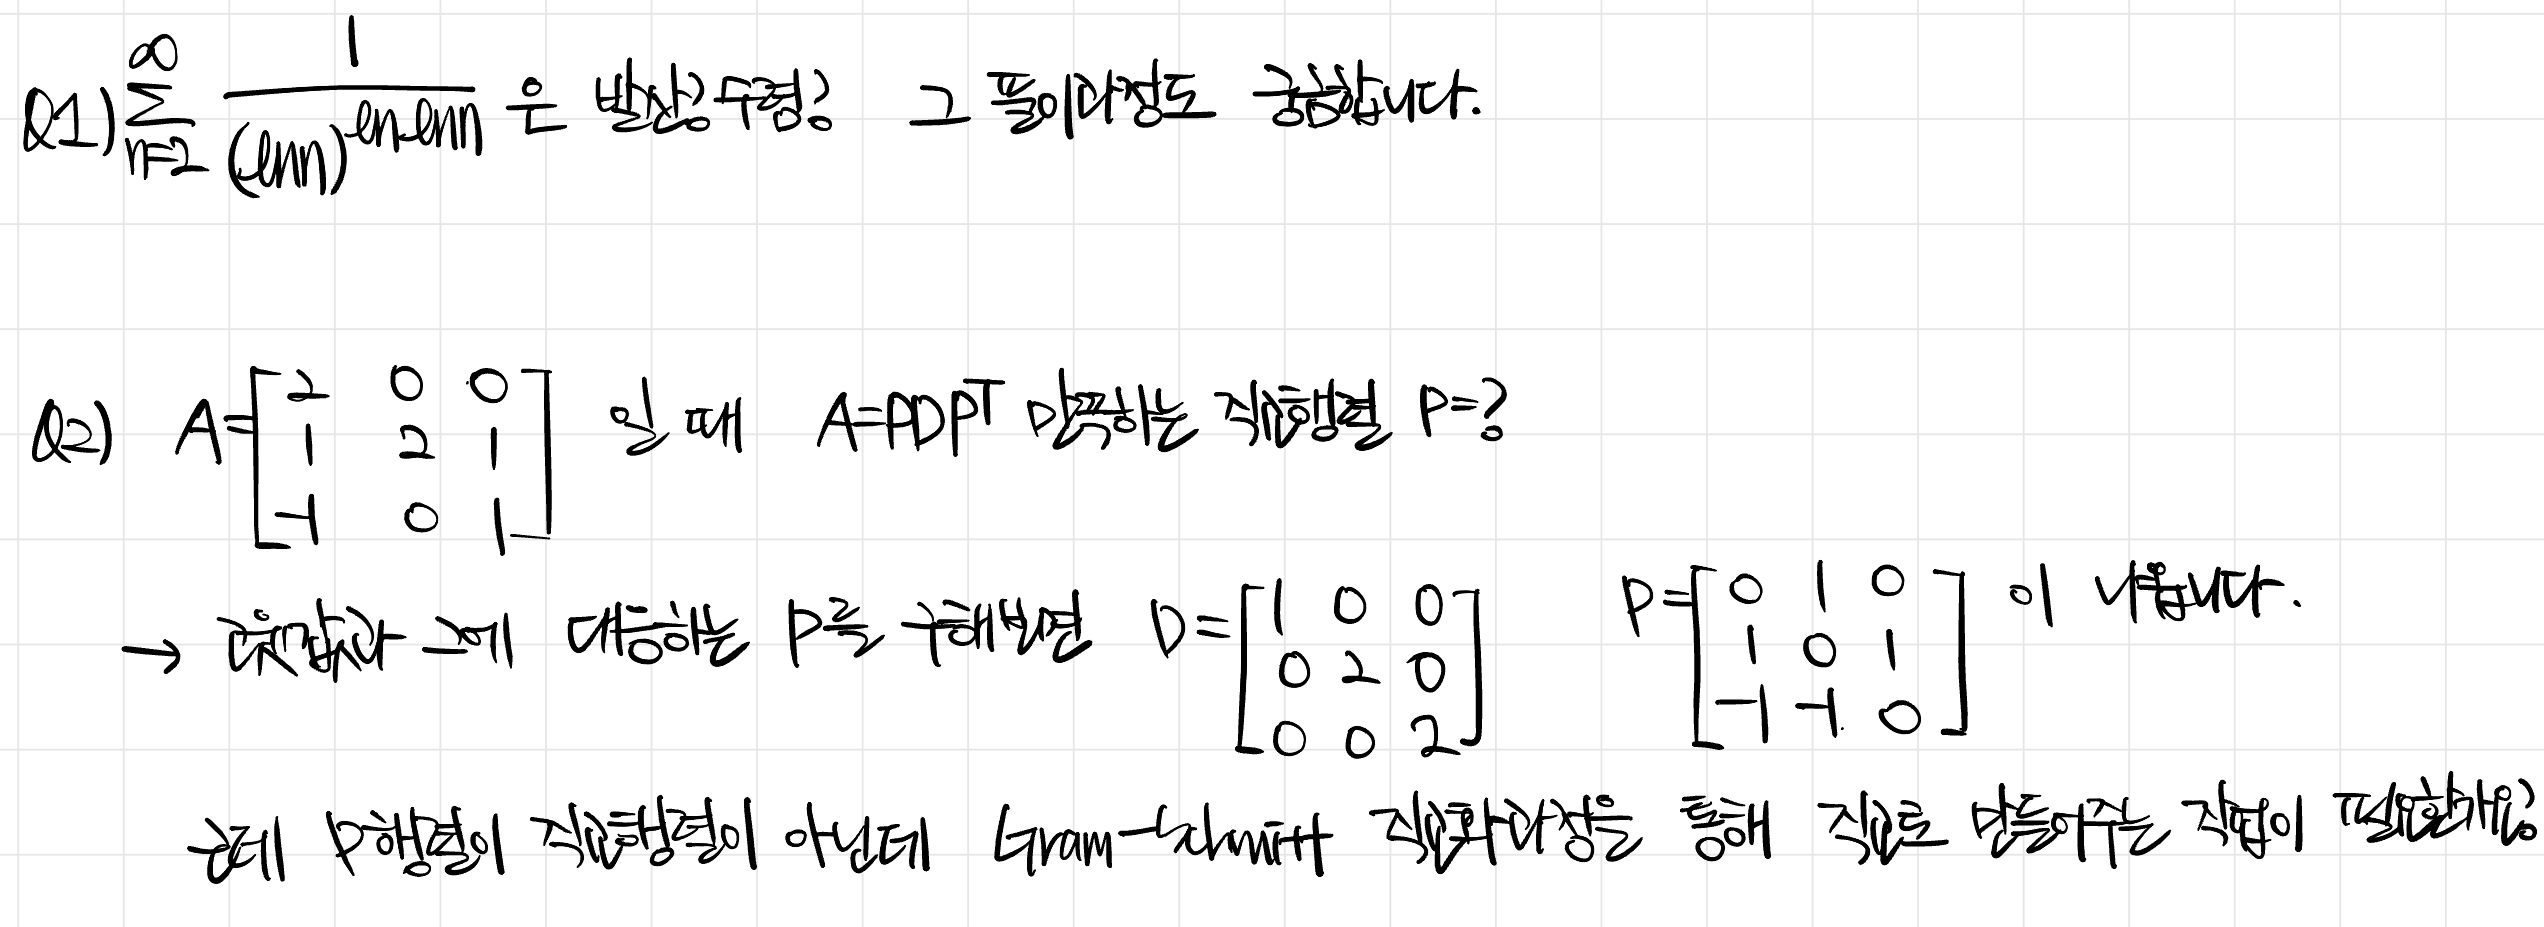 Q1) ∑_{n=2}^{∞} 1/(lnn)^{ln·lnn} 은 발산? 수렴? 그 풀이과정도 궁금합니다.
Q2) A=[2 0 0; 1 2 1; -1 0 1] 일 때 A=PDP^T 만족하는 직교행렬 P=?
→ 고윳값과 그에 대응하는 P를 구해보면 D=[1 0 0; 0 2 0; 0 0 2] P=[0 1 0; 1 0 1; -1 -1 0] 이 나옵니다.
근데 P행렬이 직교행렬이 아닌데 Gram-Schmitt 직교화과정을 통해 직교로 만들어주는 작업이 필요한가요?